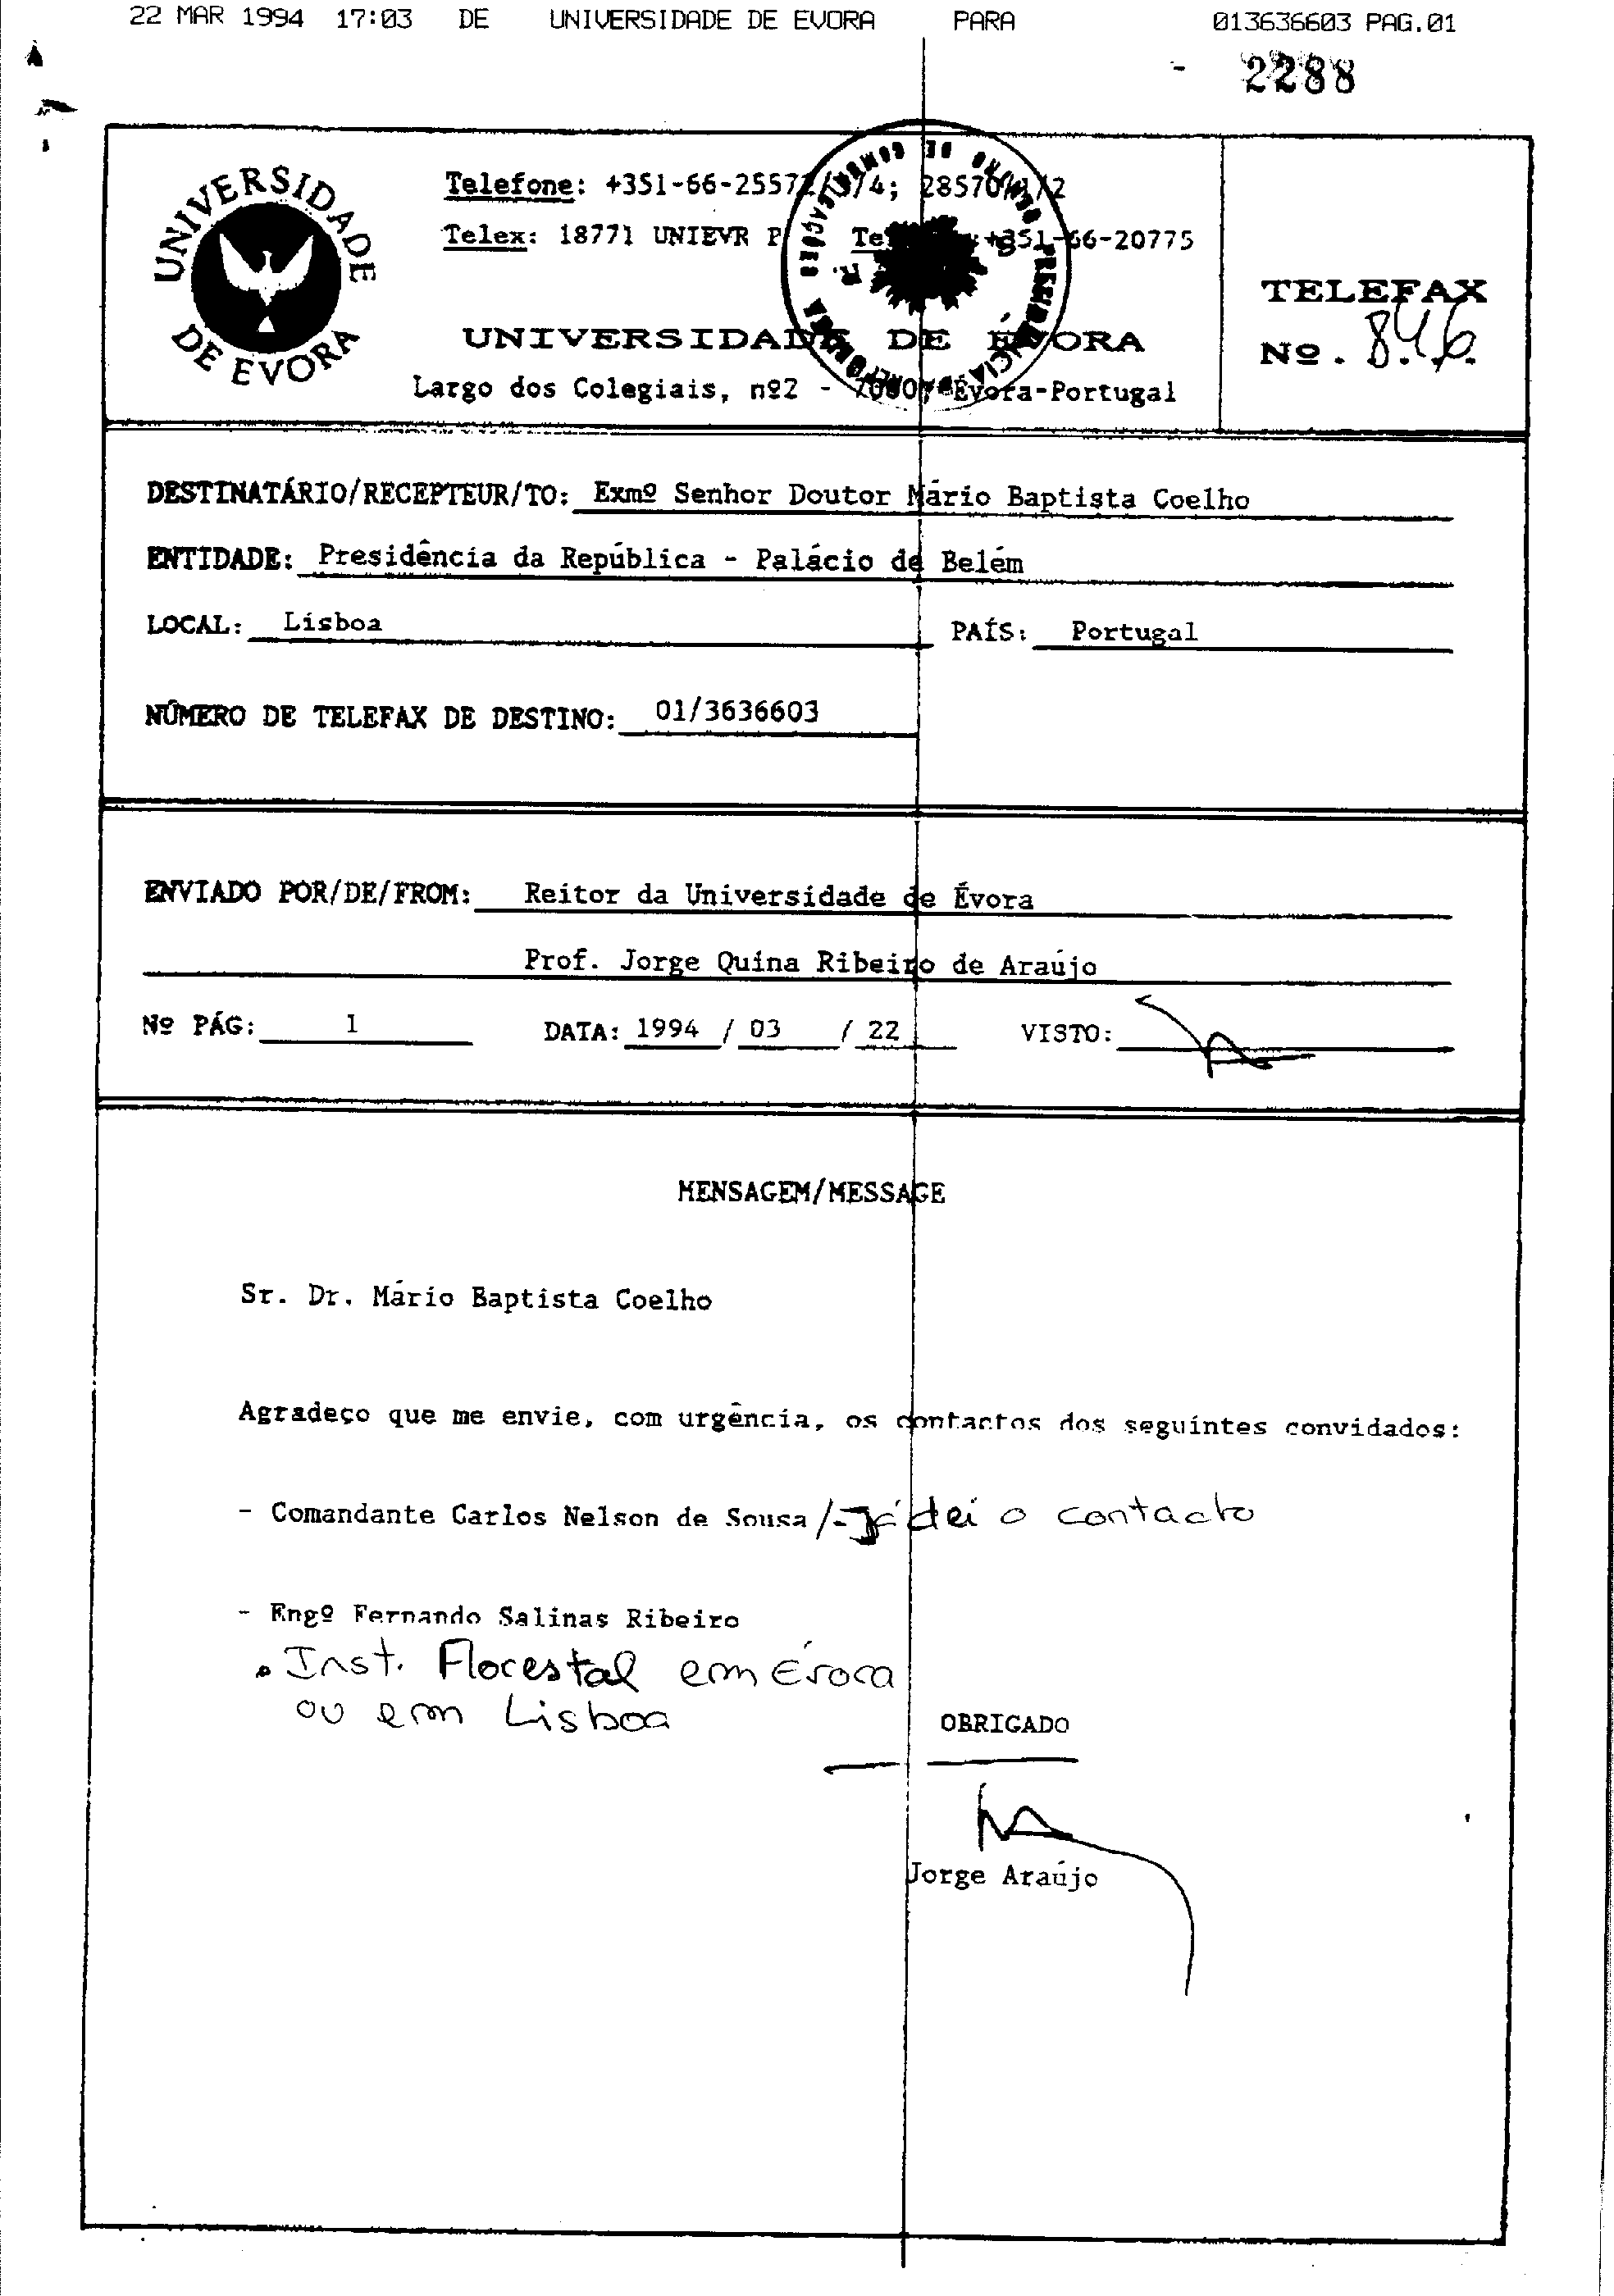 22 MAR 1994 17:03 DE UNIVERSIDADE DE EVORA PARA 013636603 PAG.01
- 2288
UNIVERSIDADE DE EVORA
Telefone: +351-66-25572/3/4; 28570/1/2
Telex: 18771 UNIEVR P +351-66-20775
UNIVERSIDADE DE ÉVORA
Largo dos Colegiais, nº2 - 7000 Évora-Portugal
TELEFAX
Nº. 846
DESTINATÁRIO/RECEPTEUR/TO: Exmº Senhor Doutor Mário Baptista Coelho
ENTIDADE: Presidência da República - Palácio de Belém
LOCAL: Lisboa PAÍS: Portugal
NÚMERO DE TELEFAX DE DESTINO: 01/3636603
ENVIADO POR/DE/FROM: Reitor da Universidade de Évora
Prof. Jorge Quina Ribeiro de Araújo
Nº PÁG: 1 DATA: 1994 / 03 / 22 VISTO:
MENSAGEM/MESSAGE
Sr. Dr. Mário Baptista Coelho
Agradeço que me envie, com urgência, os contactos dos seguintes convidados:
- Comandante Carlos Nelson de Sousa /- Já dei o contacto
- Engº Fernando Salinas Ribeiro
. Inst. Florestal em Évora
ou em Lisboa
OBRIGADO
Jorge Araújo